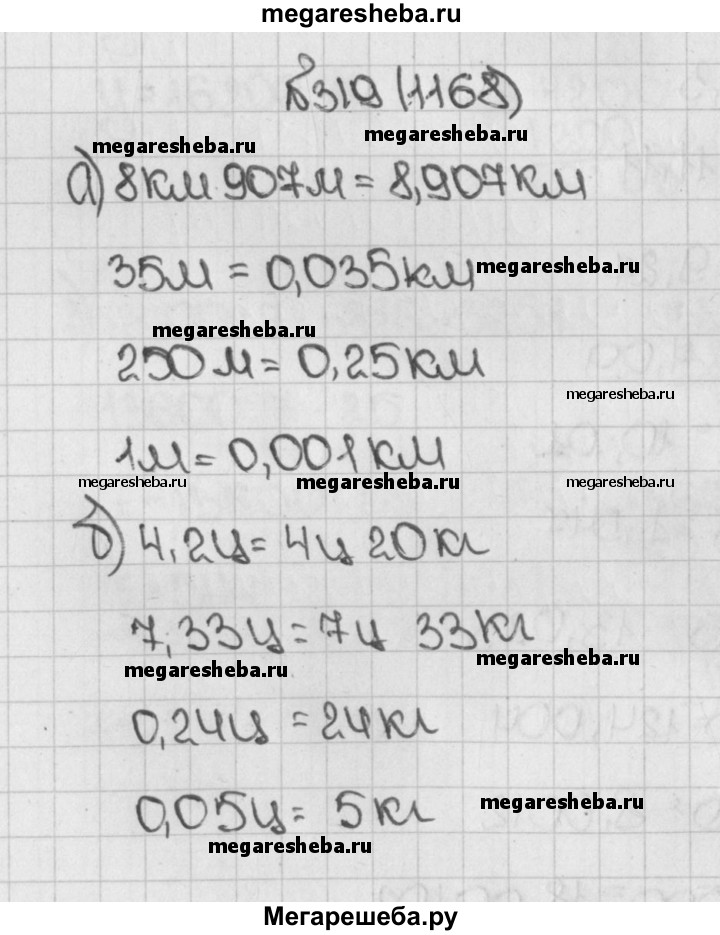 megaresheba.ru
№319 (1168)
megaresheba.ru megaresheba.ru
а) 8км 907м = 8,907км
35м = 0,035км megaresheba.ru
megaresheba.ru
250м = 0,25км
megaresheba.ru
1м = 0,001км
megaresheba.ru megaresheba.ru megaresheba.ru
б) 4,2ц = 4ц 20кг
7,33ц = 7ц 33кг
megaresheba.ru megaresheba.ru
0,24ц = 24кг
0,05ц = 5кг megaresheba.ru
megaresheba.ru
Мегарешеба.ру